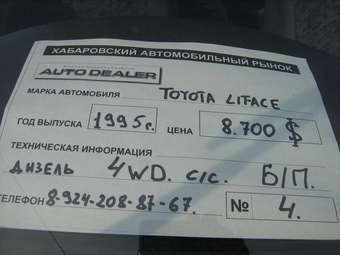 ХАБАРОВСКИЙ АВТОМОБИЛЬНЫЙ РЫНОК
AUTO DEALER
МАРКА АВТОМОБИЛЯ TOYOTA LITACE
ГОД ВЫПУСКА 1995г. ЦЕНА 8.700 $
ТЕХНИЧЕСКАЯ ИНФОРМАЦИЯ
ДИЗЕЛЬ 4WD. с/с. Б/П.
ТЕЛЕФОН 8-924-208-87-67. № 4.